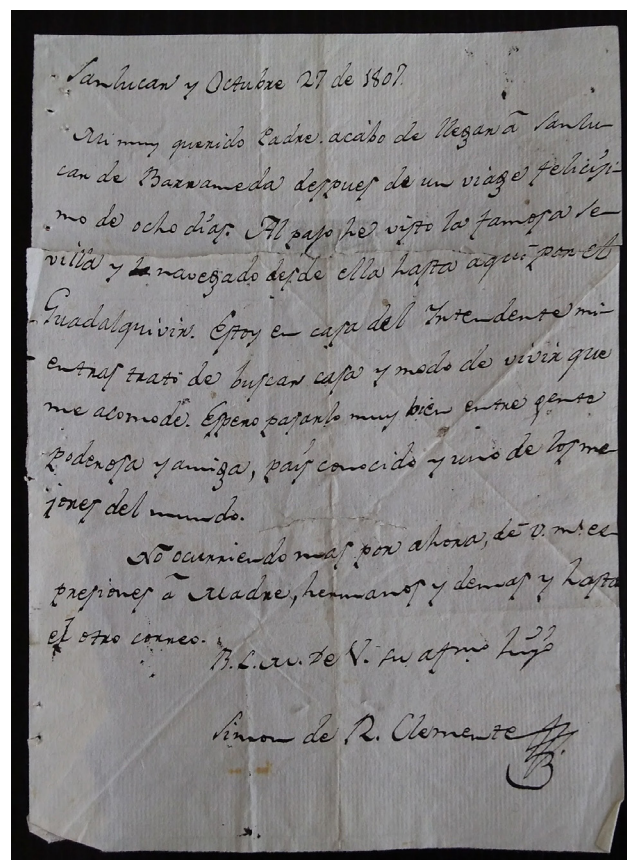 Sanlucar y Octubre 27 de 1807.
Mi muy querido Padre. acábo de llegar â Sanlu-
car de Barrameda despues de un viage felicísi-
mo de ocho días. Al paso he visto la famosa Se-
villa y navegado desde ella hasta aquí por el
Guadalquivir. Estoy en casa del Intendente mi-
entras trato de buscar casa y modo de vivir que
me acomode. Espero pasarlo muy bien entre gente
poderosa y amiga, país conocido y uno de los me-
jores del mundo.
No ocurriendo mas por ahora, dé V. m.s es-
presiones â Madre, hermanos y demas y hasta
el otro correo.
B. L. M. de V. su afmo hijo
Simon de R. Clemente